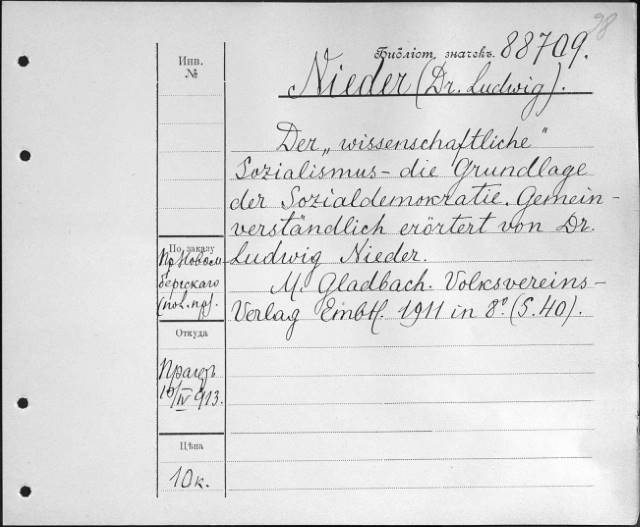 98
Библіот. значекъ. 88709.
Nieder (Dr. Ludwig).
Инв.
№
Der „wissenschaftliche"
Sozialismus - die Grundlage
der Sozialdemokratie. Gemein-
verständlich erörtert von Dr.
Ludwig Nieder.
M. Gladbach. Volksvereins-
Verlag 1911 in 8° (S. 40).
По заказу
Пр. Новом-
бергскаго
(пол. пр).
Откуда
Прагеръ
10/IV 913.
Цѣна
10 к.